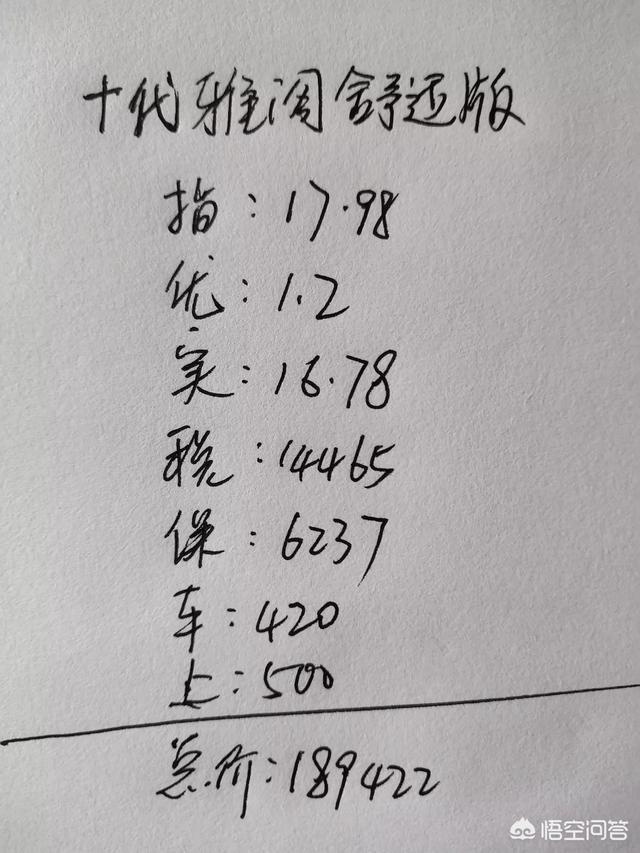 十代雅阁舒适版
指:17.98
优:1.2
实:16.78
税:14465
保:6237
车:420
上:500
总价:189422
悟空问答